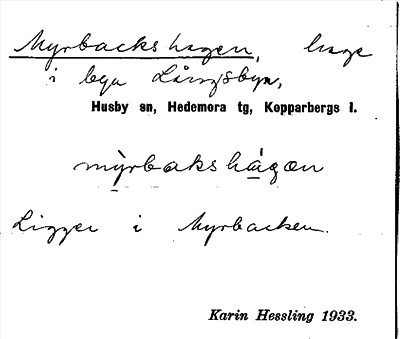 Myrbackshagen, hage
i bya Långsbyn,
Husby sn, Hedemora tg, Kopparbergs l.
mỳrbakshágœn
Ligger i Myrbacken.
Karin Hessling 1933.